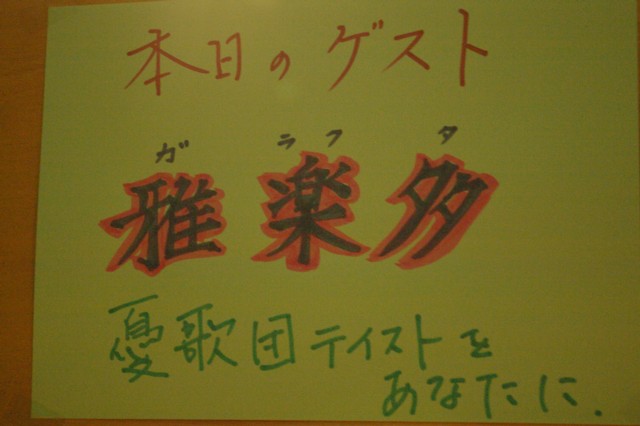 本日のゲスト
ガラフタ
雅楽多
憂歌団テイストを
あなたに.